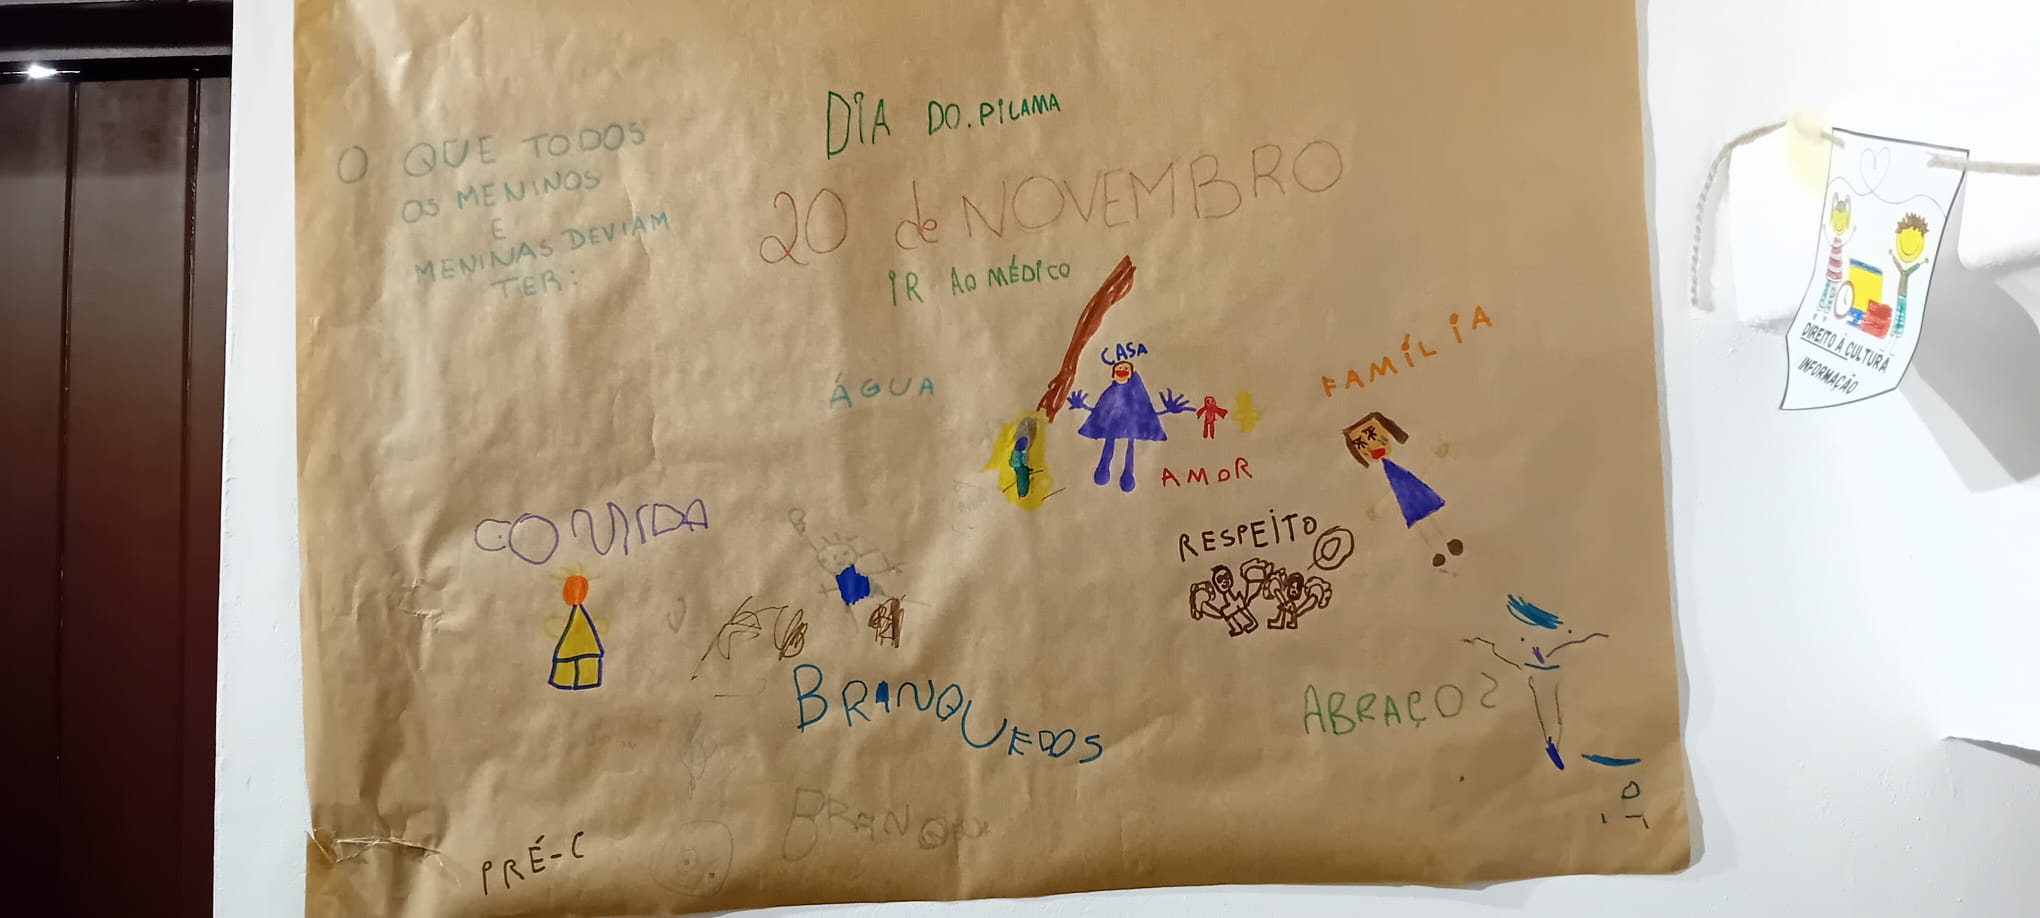 O QUE TODOS
OS MENINOS
E
MENINAS DEVIAM
TER:
DIA DO. PILAMA
20 de NOVEMBRO
IR AO MÉDICO
ÁGUA
CASA
AMOR
FAMÍLIA
COMIDA
RESPEITO
BRINQUEDOS
ABRAÇOS
PRÉ-C
DIREITO À CULTURA
INFORMAÇÃO